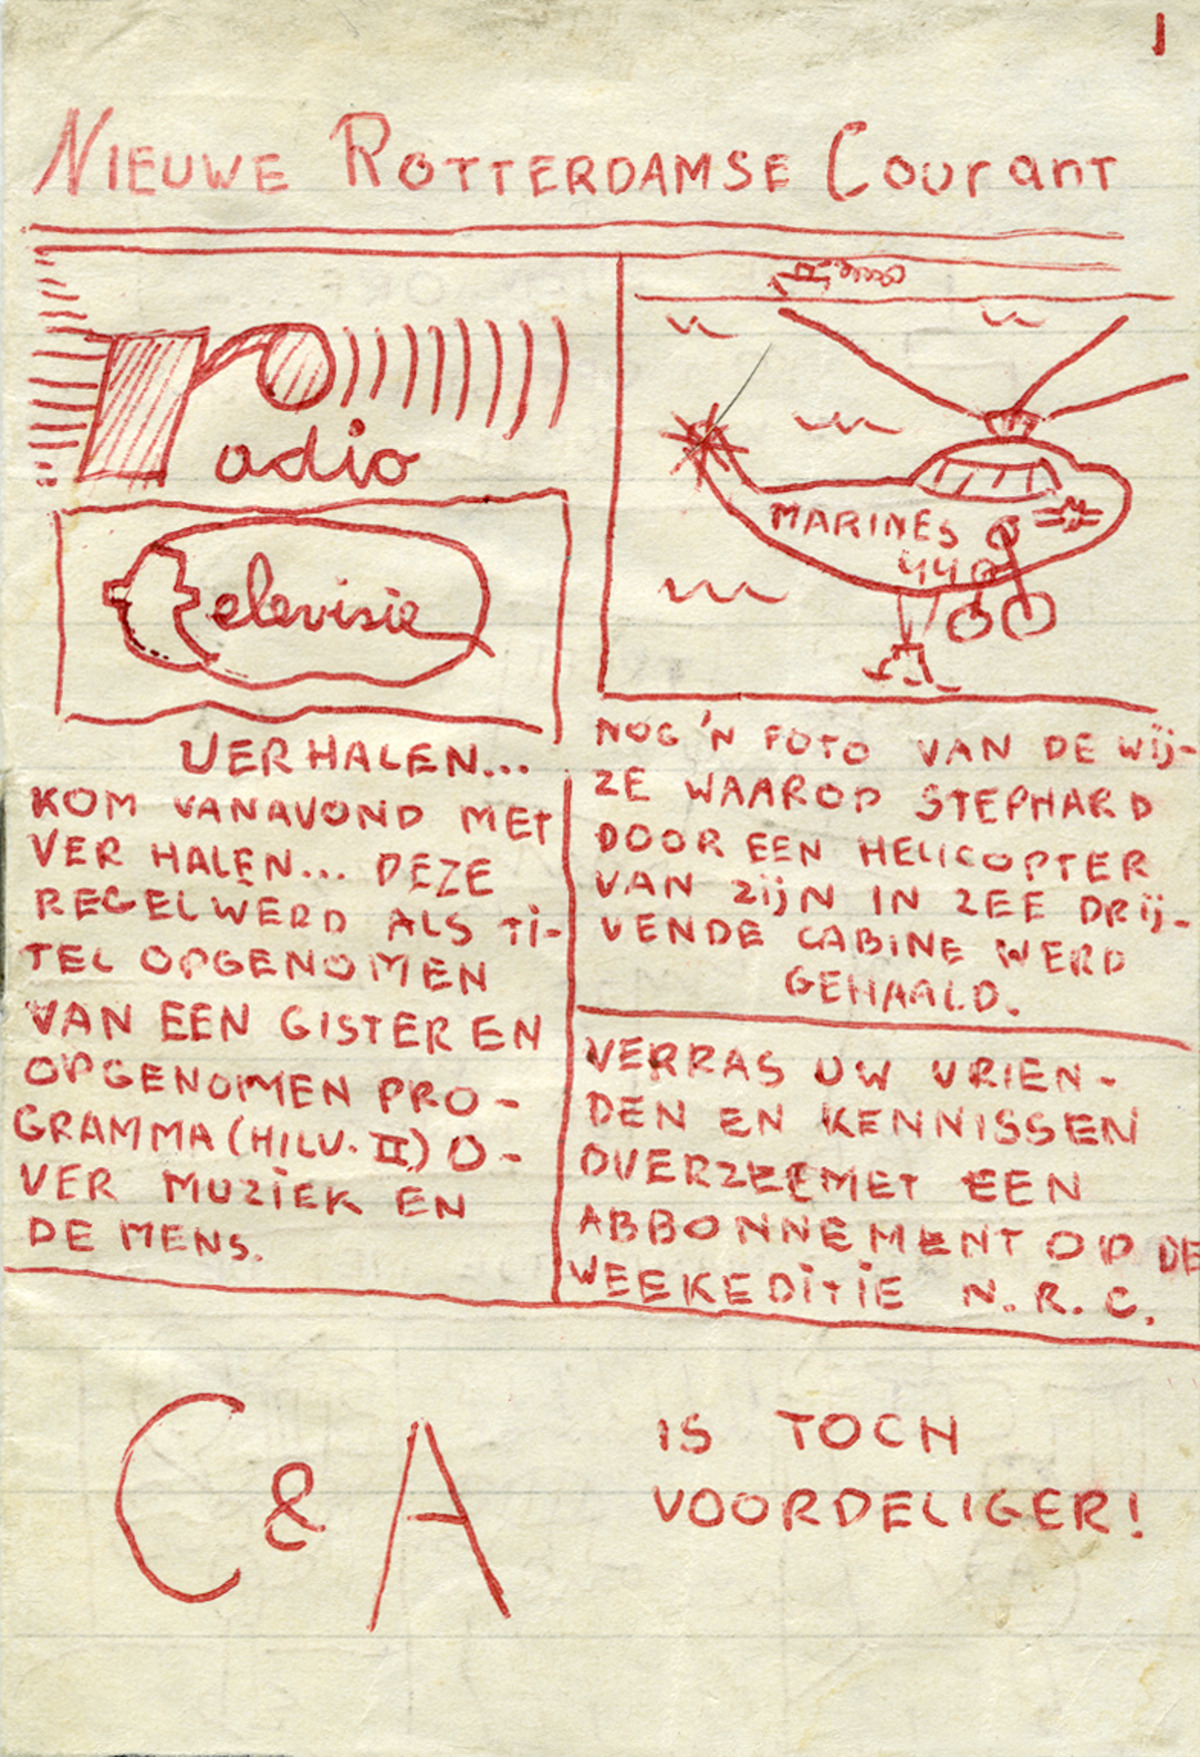 1
NIEUWE ROTTERDAMSE Courant
adio
elevisie
VERHALEN...
KOM VANAVOND MET
VERHALEN... DEZE
REGEL WERD ALS TI-
TEL OPGENOMEN
VAN EEN GISTEREN
OPGENOMEN PRO-
GRAMMA (HILV. II) O-
VER MUZIEK EN
DE MENS.
MARINES
NOG 'N FOTO VAN DE WIJ-
ZE WAAROP STEPHARD
DOOR EEN HELICOPTER
VAN ZIJN IN ZEE DRIJ-
VENDE CABINE WERD
GEHAALD.
VERRAS UW VRIEN-
DEN EN KENNISSEN
OVERZEE MET EEN
ABBONNEMENT OP DE
WEEKEDITIE N.R.C.
C & A
IS TOCH
VOORDELIGER!